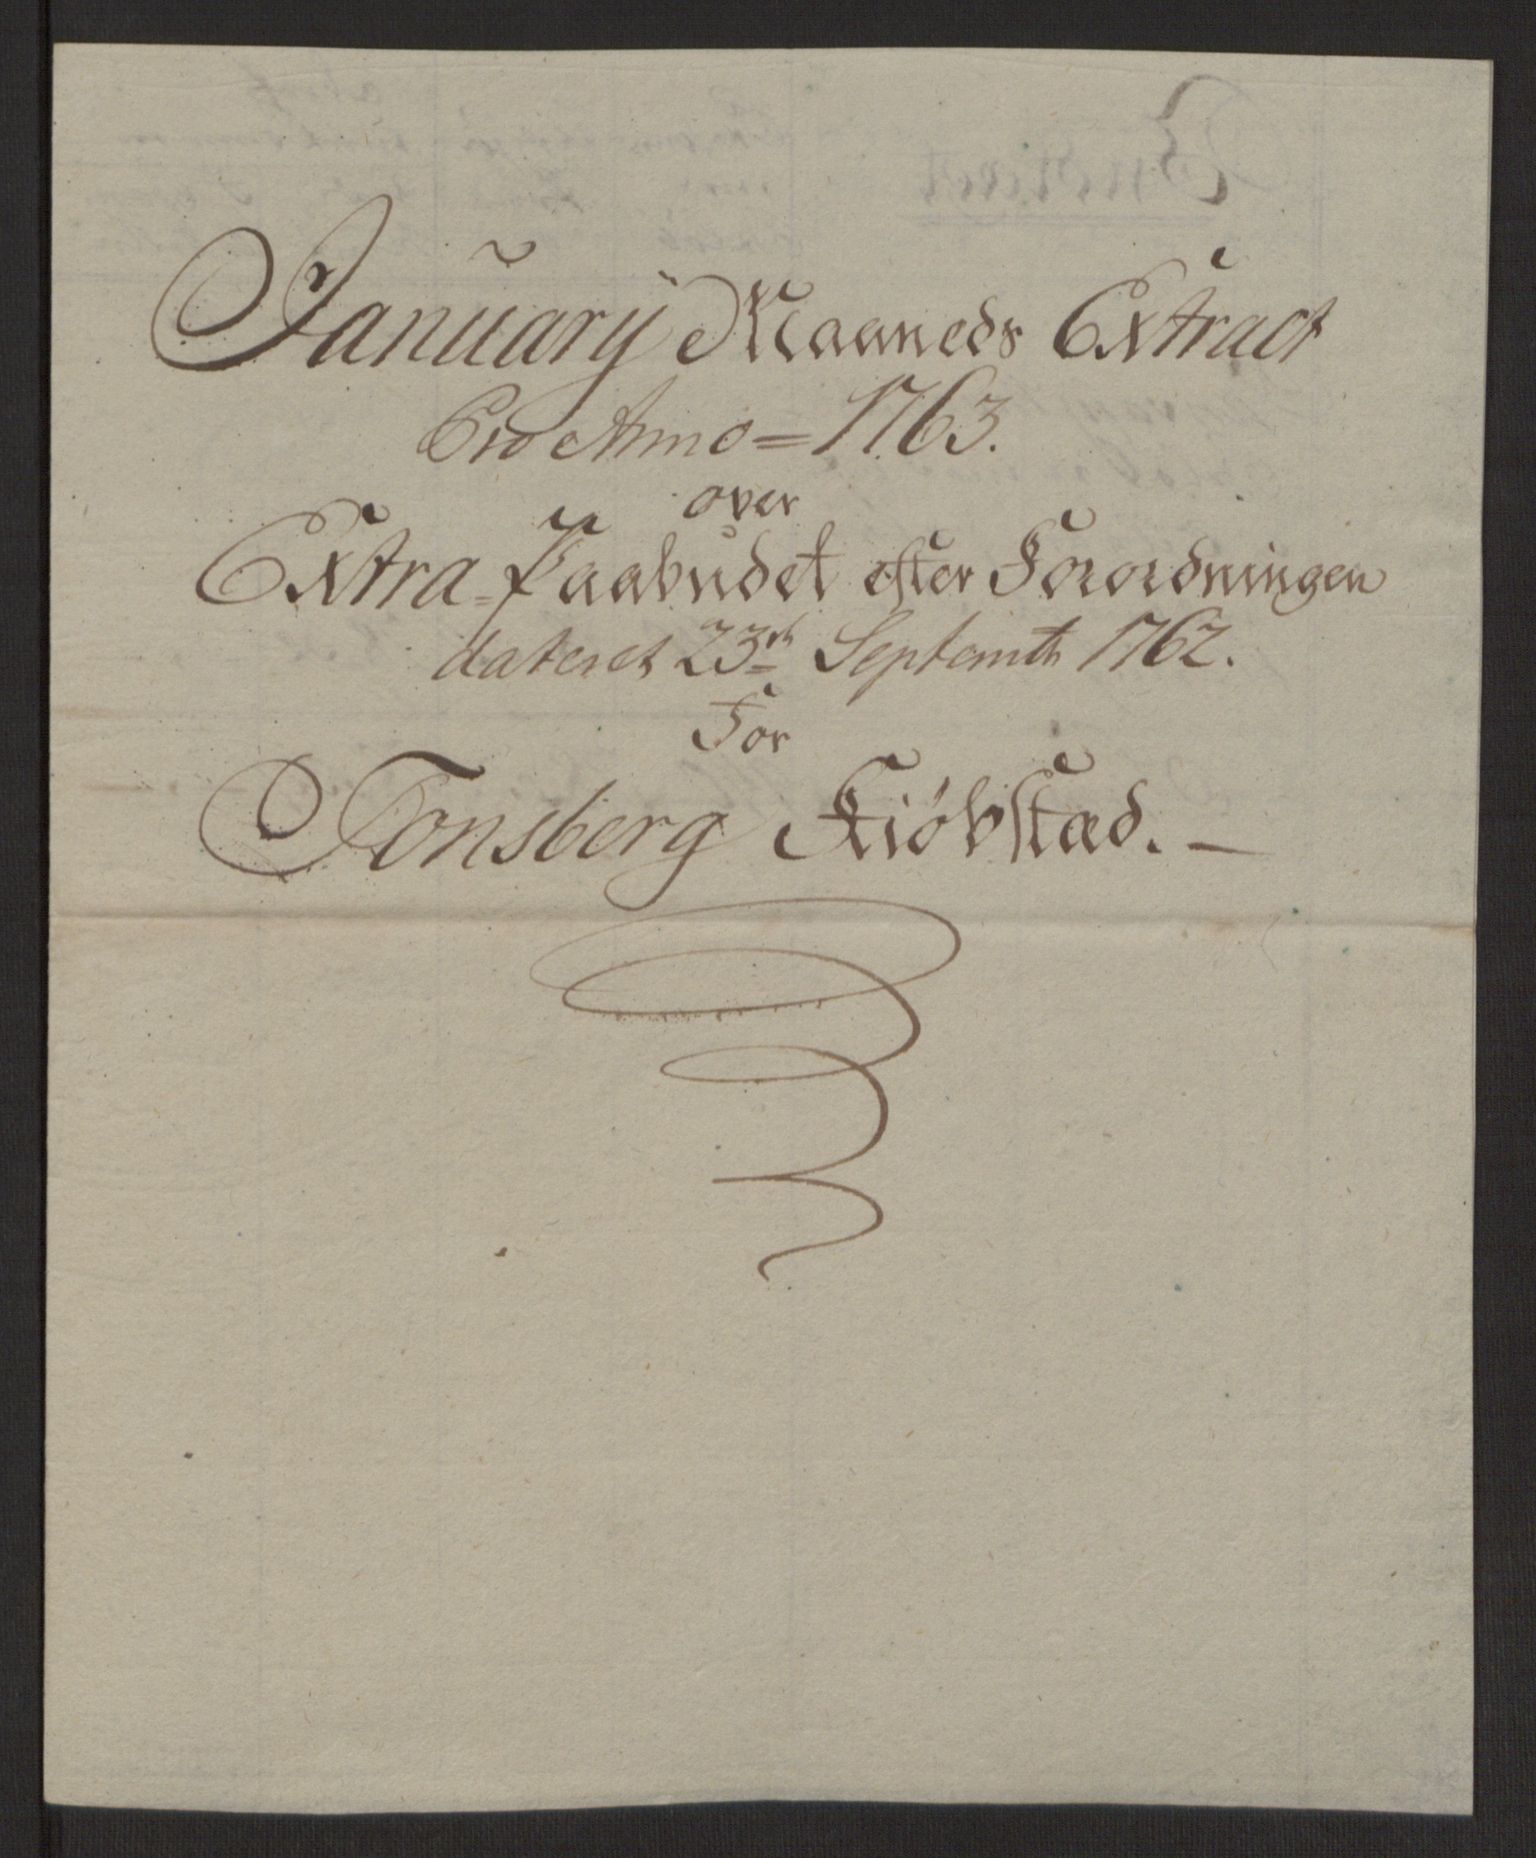 Januarÿ Maaneds Extract
Pro Anno = 1763.
over
Extra-Paabudet efter Forordningen
dateret 23de Septembr 1762.
For
Tonsberg Kiöbstæd. —